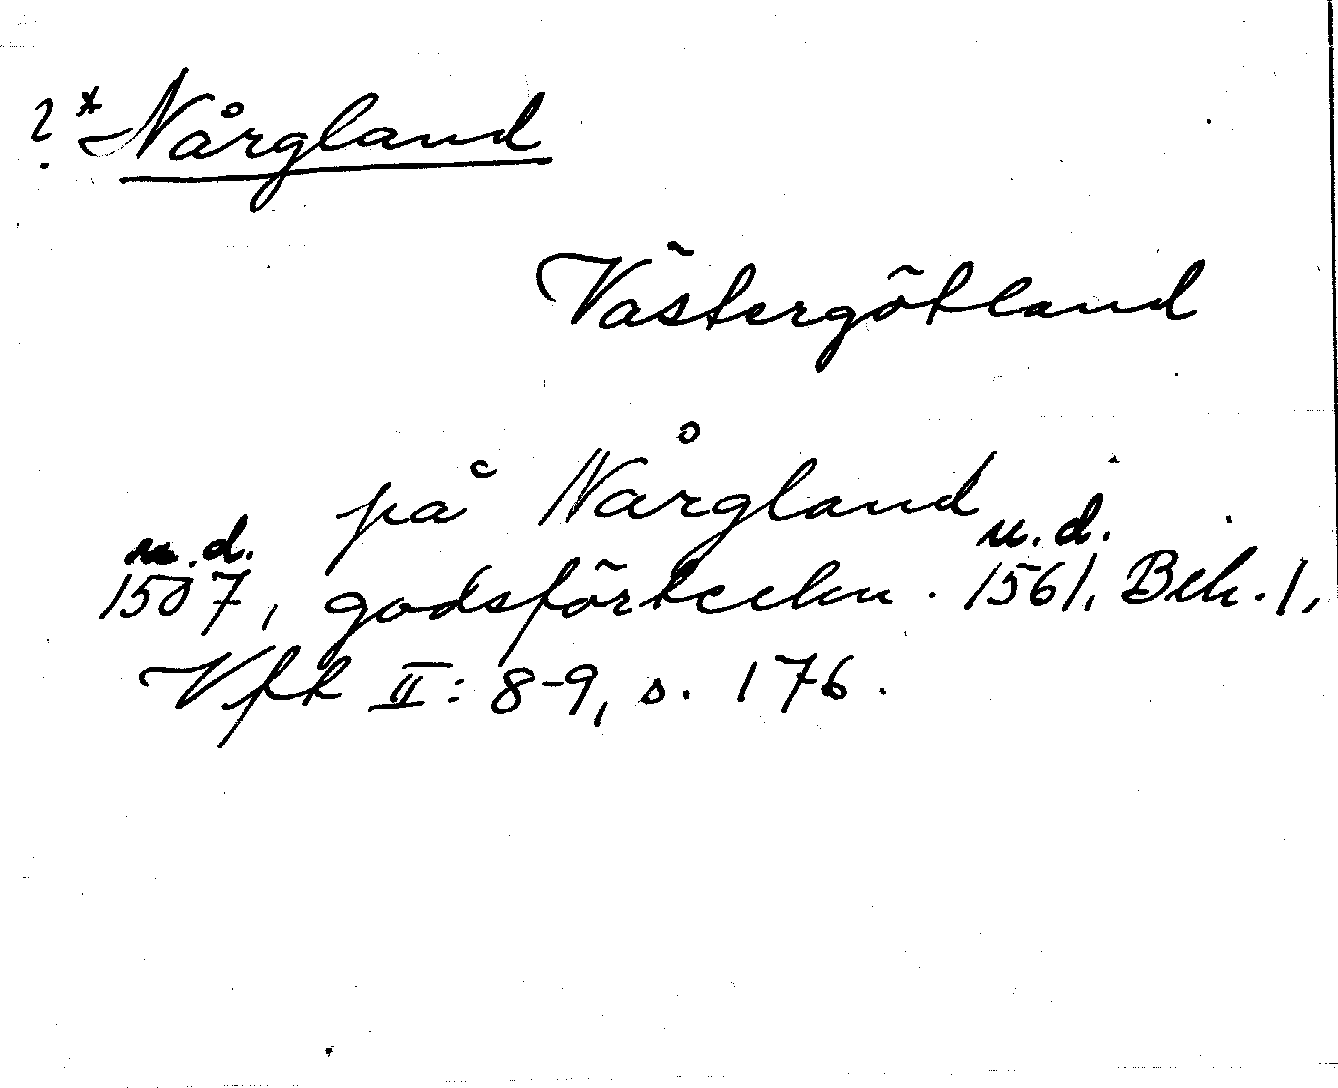 ? *Nårgland
Västergötland
på Nårgland
u.d. u.d.
1507, godsförteckn. 1561, Bih. 1,
Vfk II: 8-9, s. 176.